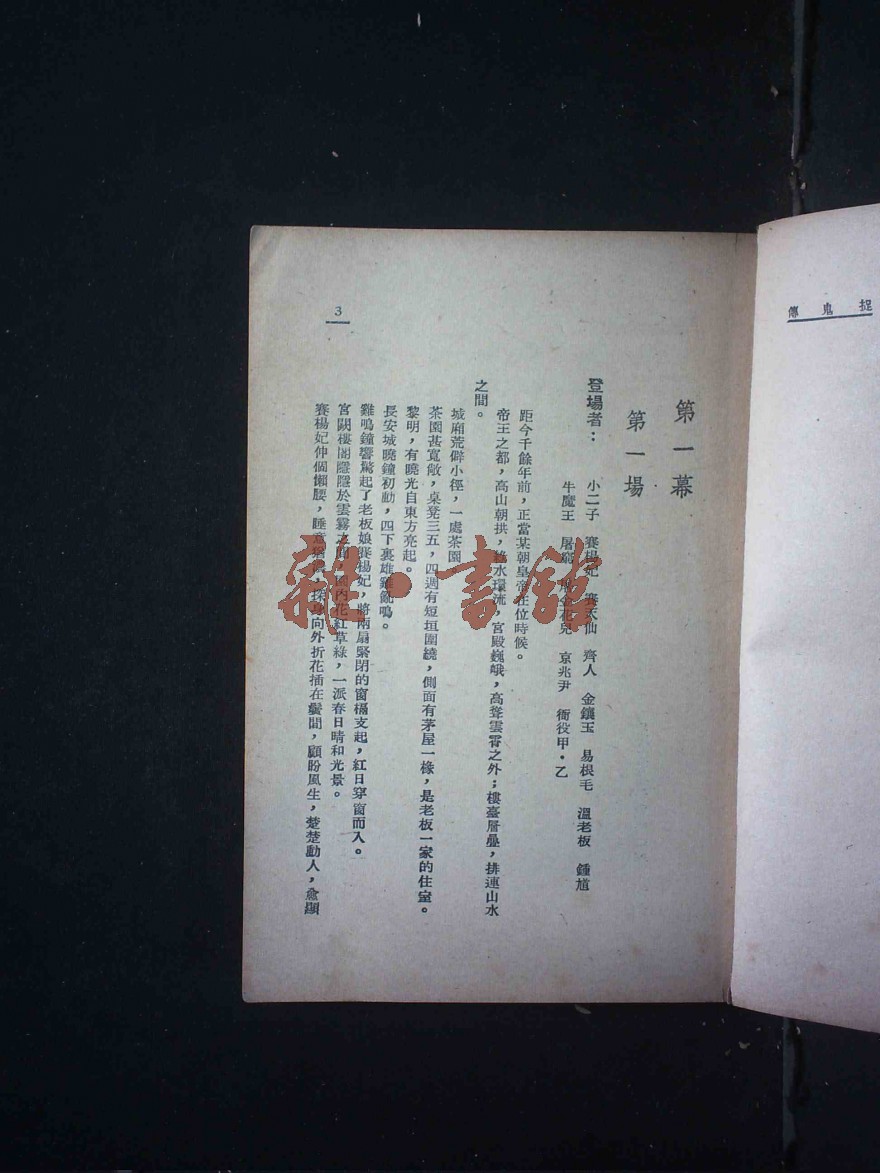 捉鬼傳
第一幕
第一場
登場者：小二子　賽楊妃　賽天仙　齊人　金鑲玉　易根毛　溫老板　鍾馗
牛魔王　屠　花兒　京兆尹　衙役甲・乙
距今千餘年前，正當某朝皇帝在位時候。
帝王之都，高山朝拱，綠水環流，宮殿巍峨，高聳雲霄之外；樓臺層疊，排連山水
之間。
城廂荒僻小徑，一處茶園。
茶園甚寬敞，桌凳三五，四週有短垣圍繞，側面有茅屋一椽，是老板一家的住室。
黎明，有曉光自東方亮起。
長安城曉鐘初動，四下裏雄雞亂鳴。
雞鳴鐘響驚起了老板娘賽楊妃，將兩扇緊閉的窗槅支起，紅日穿窗而入。
宮闕樓閣隱隱於雲霧之間，園內花紅草綠，一派春日晴和光景。
賽楊妃伸個懶腰，睡意　向外折花插在鬢間，顧盼風生，楚楚動人，愈顯
3
雜・書館